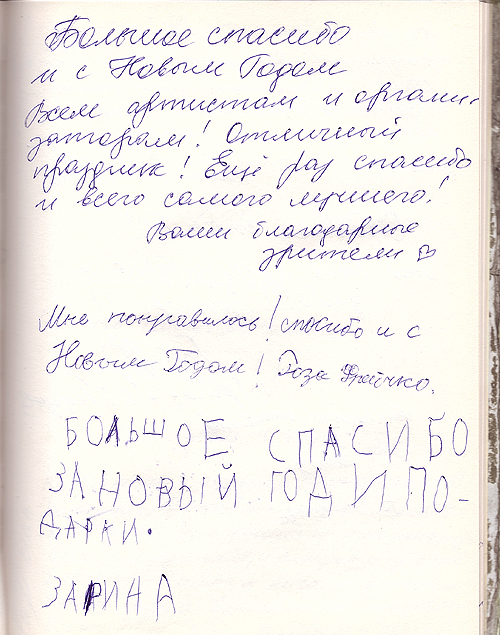 Большое спасибо
и с Новым Годом
Всем артистам и органи-
заторам! Отличный
праздник! Ещё раз спасибо
и всего самого лучшего!
Ваши благодарные
зрители ♡
Мне понравилось! спасибо и с
Новым Годом! Роза
БОЛЬШОЕ СПАСИБО
ЗА НОВЫЙ ГОД И ПО-
ДАРКИ.
ЗАРИНА